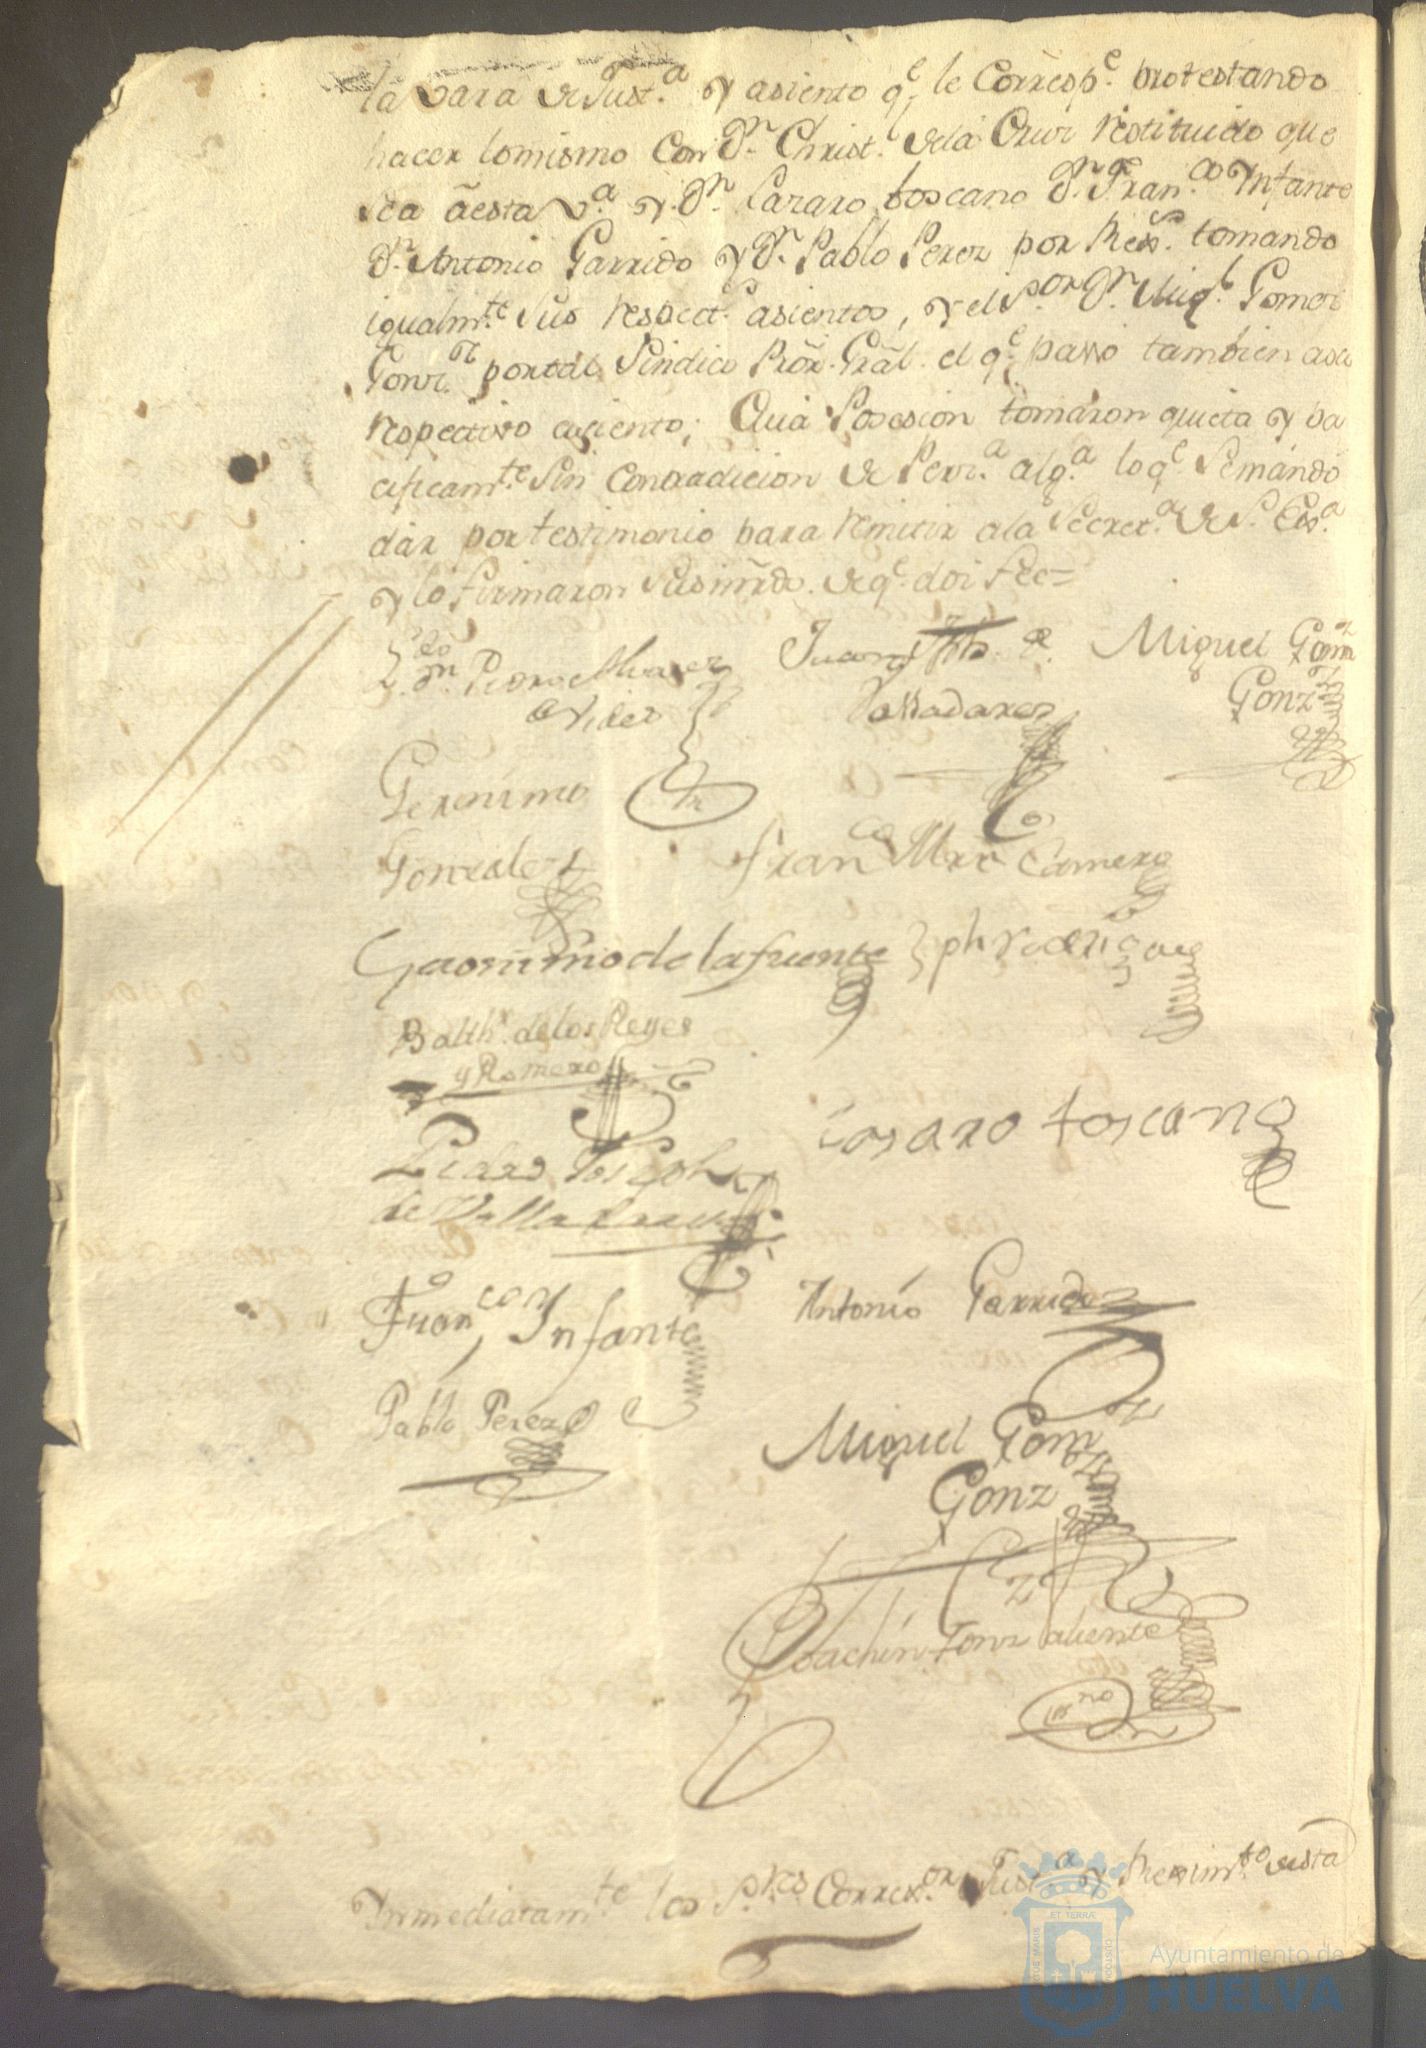 la vara de Just.a y asiento q.e le Corresp.e protestando
hacer lo mismo Con D.n Christ.l dela Cruz restituido que
sea a esta V.a y D.n Lazaro toscano D.n Fran.co Ynfante
D.n Antonio Garrido y D.n Pablo Perez por Rex.s tomando
igualm.te sus respect.s asientos, y el S.or D.n Mig.l Gomez
Gonz.z por tal Sindico Prõr. Grãl. el q.e passo tambien a su
respectivo asiento; Cuia Posesion tomaron quieta y pa
cificam.te sin Contradicion de Perz.a alg.a lo q.e se mandó
dar por testimonio para remitir a la Secret.a de S. Ex.a
y lo firmaron sus mrds. de q.e doi fee=
L.do D.n Pedro Alvarez
Juan Jph. de
Valladares
Miguel Gom
Gonz
Geronimo
Gonzales
Fran.co Mrn Camero
Geronimo de la fuente
Jph rodrigues
Balth.r de los Reyes
y Romero
Lasaro toscano
Pedro Joseph
de Valladares
Fran.co Infante
Antonio Garrido
Pablo Perez
Miguel Gom
Gonz
Joachin Gonz Valiente
ess.no
Ynmediatam.te los S.res Correx.or Just.a y Reximt.to desta
ET TERRÆ
PORTUS MARIS
CUSTODIA
Ayuntamiento de
HUELVA